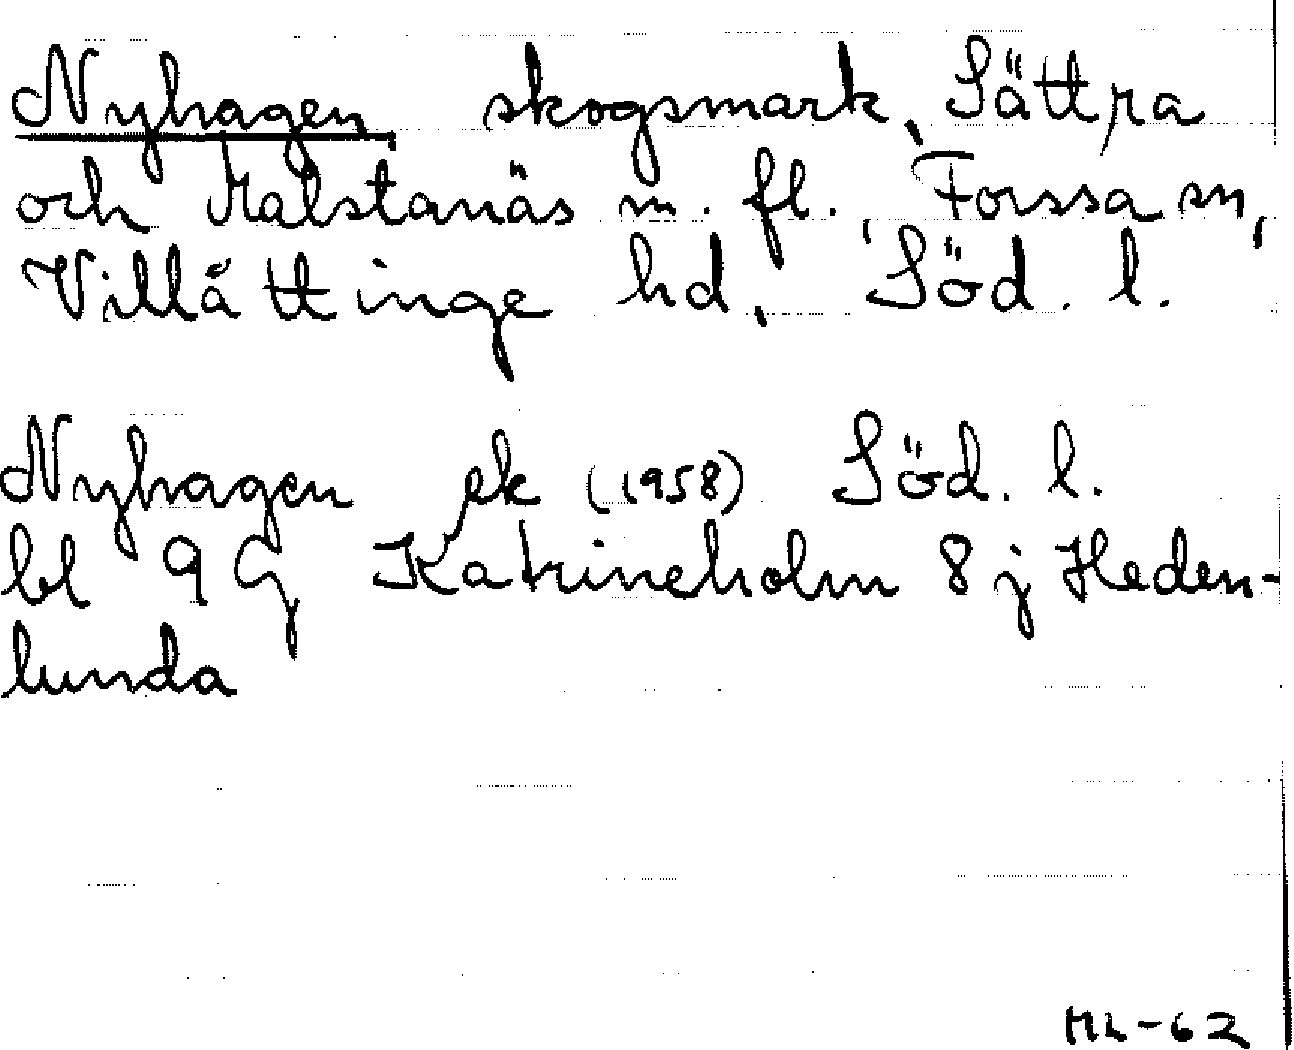 Nyhagen, skogsmark, Sättra
och Kalstanäs m. fl., Forssa sn,
Villåttinge hd, Söd. l.
Nyhagen ek (1958) Söd. l.
bl 9 G Katrineholm 8 j Heden-
lunda
ML-62